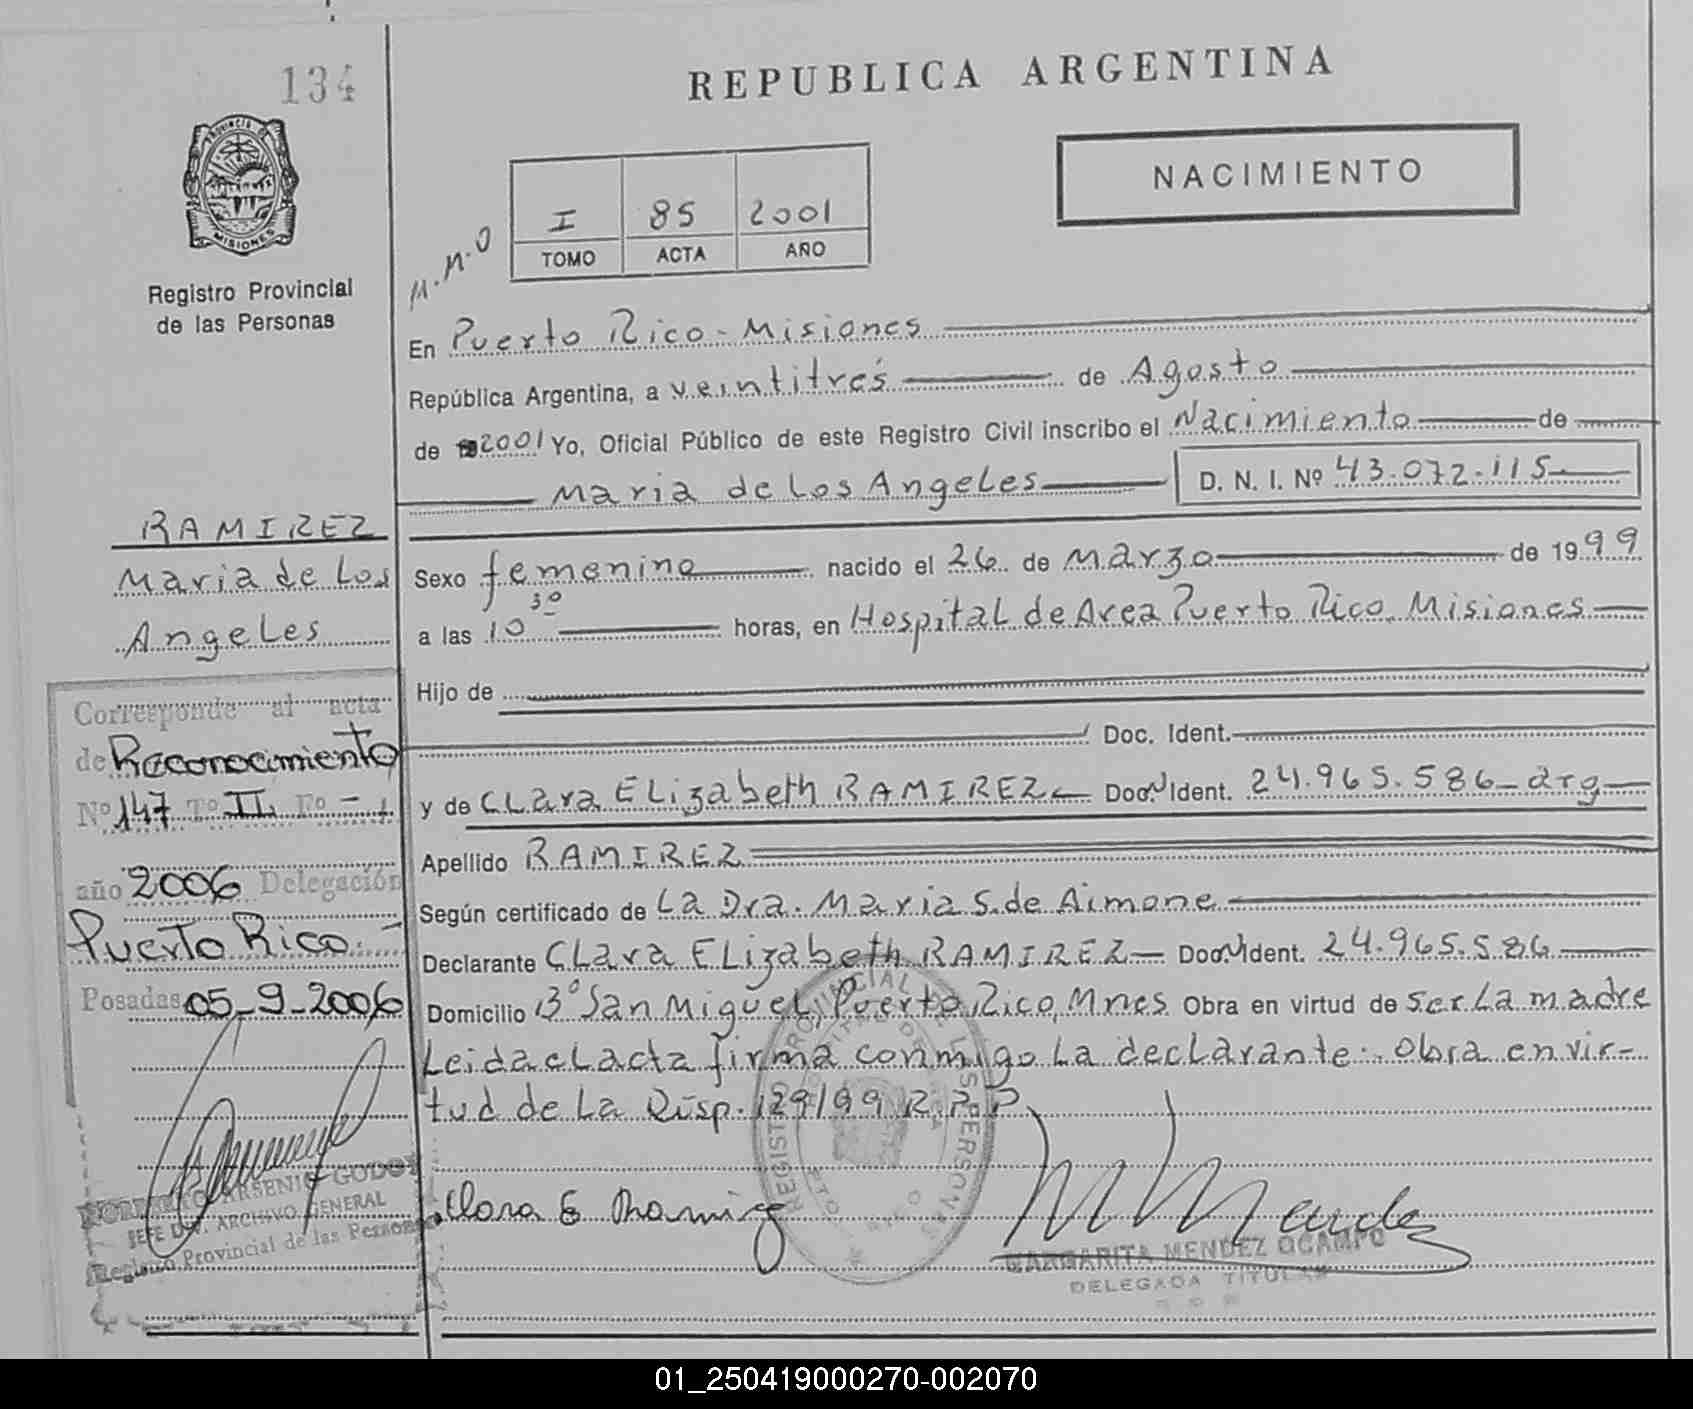 134
REPUBLICA ARGENTINA
PROVINCIA DE
MISIONES
Registro Provincial
de las Personas
NACIMIENTO
I 85 2001
TOMO ACTA AÑO
M.M.O
En Puerto Rico - Misiones
República Argentina, a veintitrés de Agosto
de 2001 Yo, Oficial Público de este Registro Civil inscribo el Nacimiento de
Maria de Los Angeles D. N. I. Nº 43.072.115
RAMIREZ
Maria de Los
Angeles
Sexo femenino nacido el 26 de Marzo de 1999
a las 10 30 horas, en Hospital de Area Puerto Rico, Misiones
Hijo de
Doc. Ident.
y de CLara ELizabeth RAMIREZ Doc. Ident. 24.965.586 - arg
Apellido RAMIREZ
Según certificado de La Dra. Maria S. de Aimone
Declarante CLara ELizabeth RAMIREZ - Doc. Ident. 24.965.586
Domicilio Bº San Miguel, Puerto Rico, Mnes Obra en virtud de ser La madre
Leida el acta firma conmigo La declarante. Obra en vir-
tud de La Disp. 129/99 R.P.P
Corresponde al acta
de Reconocimiento
Nº 147 Tº II Fº - ,
año 2006 Delegación
Puerto Rico. -
Posadas 05-9-2006
NORBERTO ARSENIO GODOY
JEFE DIV. ARCHIVO GENERAL
Registro Provincial de las Personas
Clara E Ramirez
REGISTRO PROVINCIAL DE LAS PERSONAS
MARGARITA MENDEZ OCAMPO
DELEGADA TITULAR
01_250419000270-002070